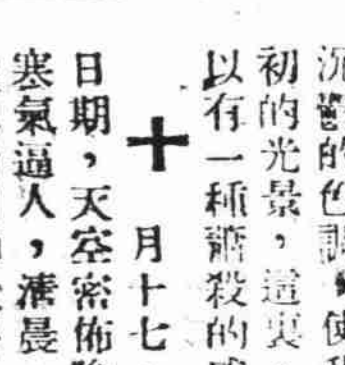 的色調，使
初的光景，這裏
以有一種肅殺的
十月十七
日期，天空密佈
寒氣逼人，清晨